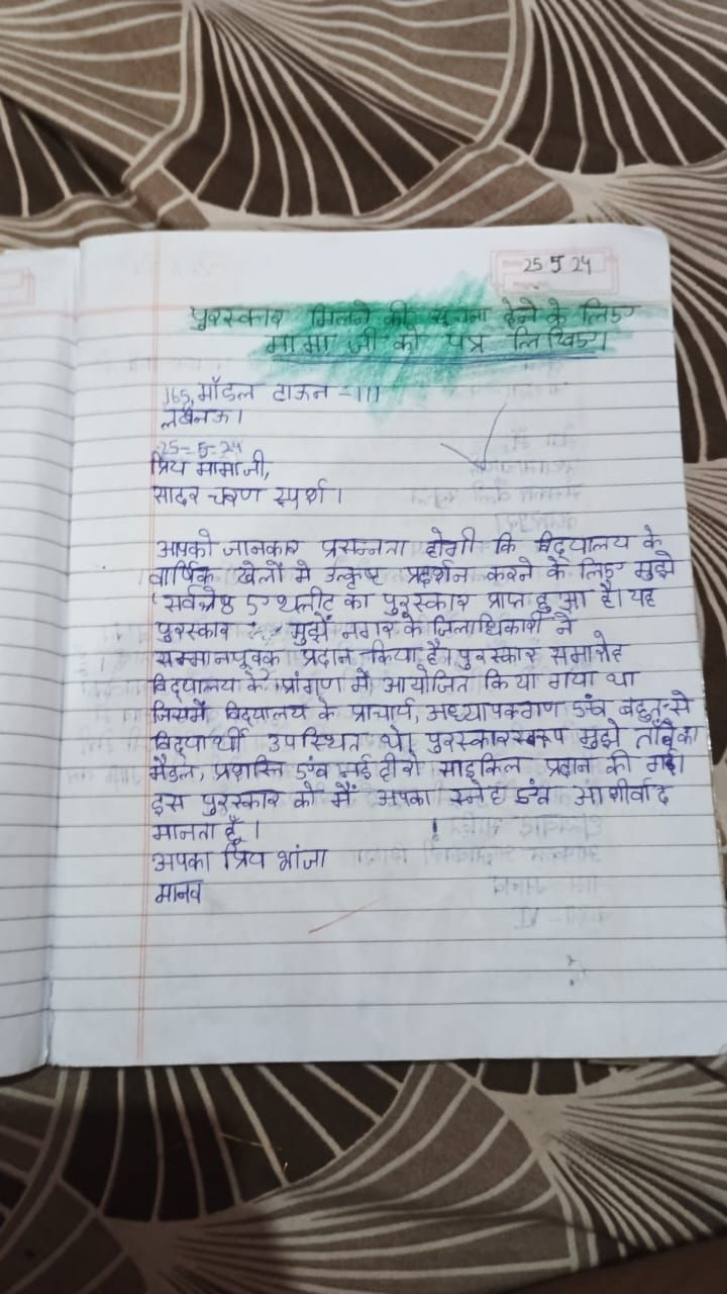 25 5 24
पुरस्कार मिलने की सूचना देने के लिए
मामा जी को पत्र लिखिए।
165, मॉडल टाऊन -III
लखनऊ।
25-5-24
प्रिय मामाजी,
सादर चरण स्पर्श।
आपको जानकार प्रसन्नता होगी कि विद्यालय के
वार्षिक खेलों मे उत्कृष्ट प्रदर्शन करने के लिए मुझे
'सर्वश्रेष्ठ एथलीट का पुरस्कार प्राप्त हुआ है। यह
पुरस्कार मुझें नगर के जिलाधिकारी ने
सम्मानपूर्वक प्रदान किया है। पुरस्कार समारोह
विद्यालय के प्रांगण में आयोजित किया गया था
जिसमें विद्यालय के प्राचार्य, अध्यापकगण एंव बहुत-से
विद्यार्थी उपस्थित थे। पुरस्कारस्वरूप मुझे ताँबे का
मैडल, प्रशस्ति एंव हीरो साइकिल प्रदान की गई।
इस पुरस्कार को मैं अपका स्नेह एंव आशीर्वाद
मानता हूँ।
अपका प्रिय भांजा
मानव